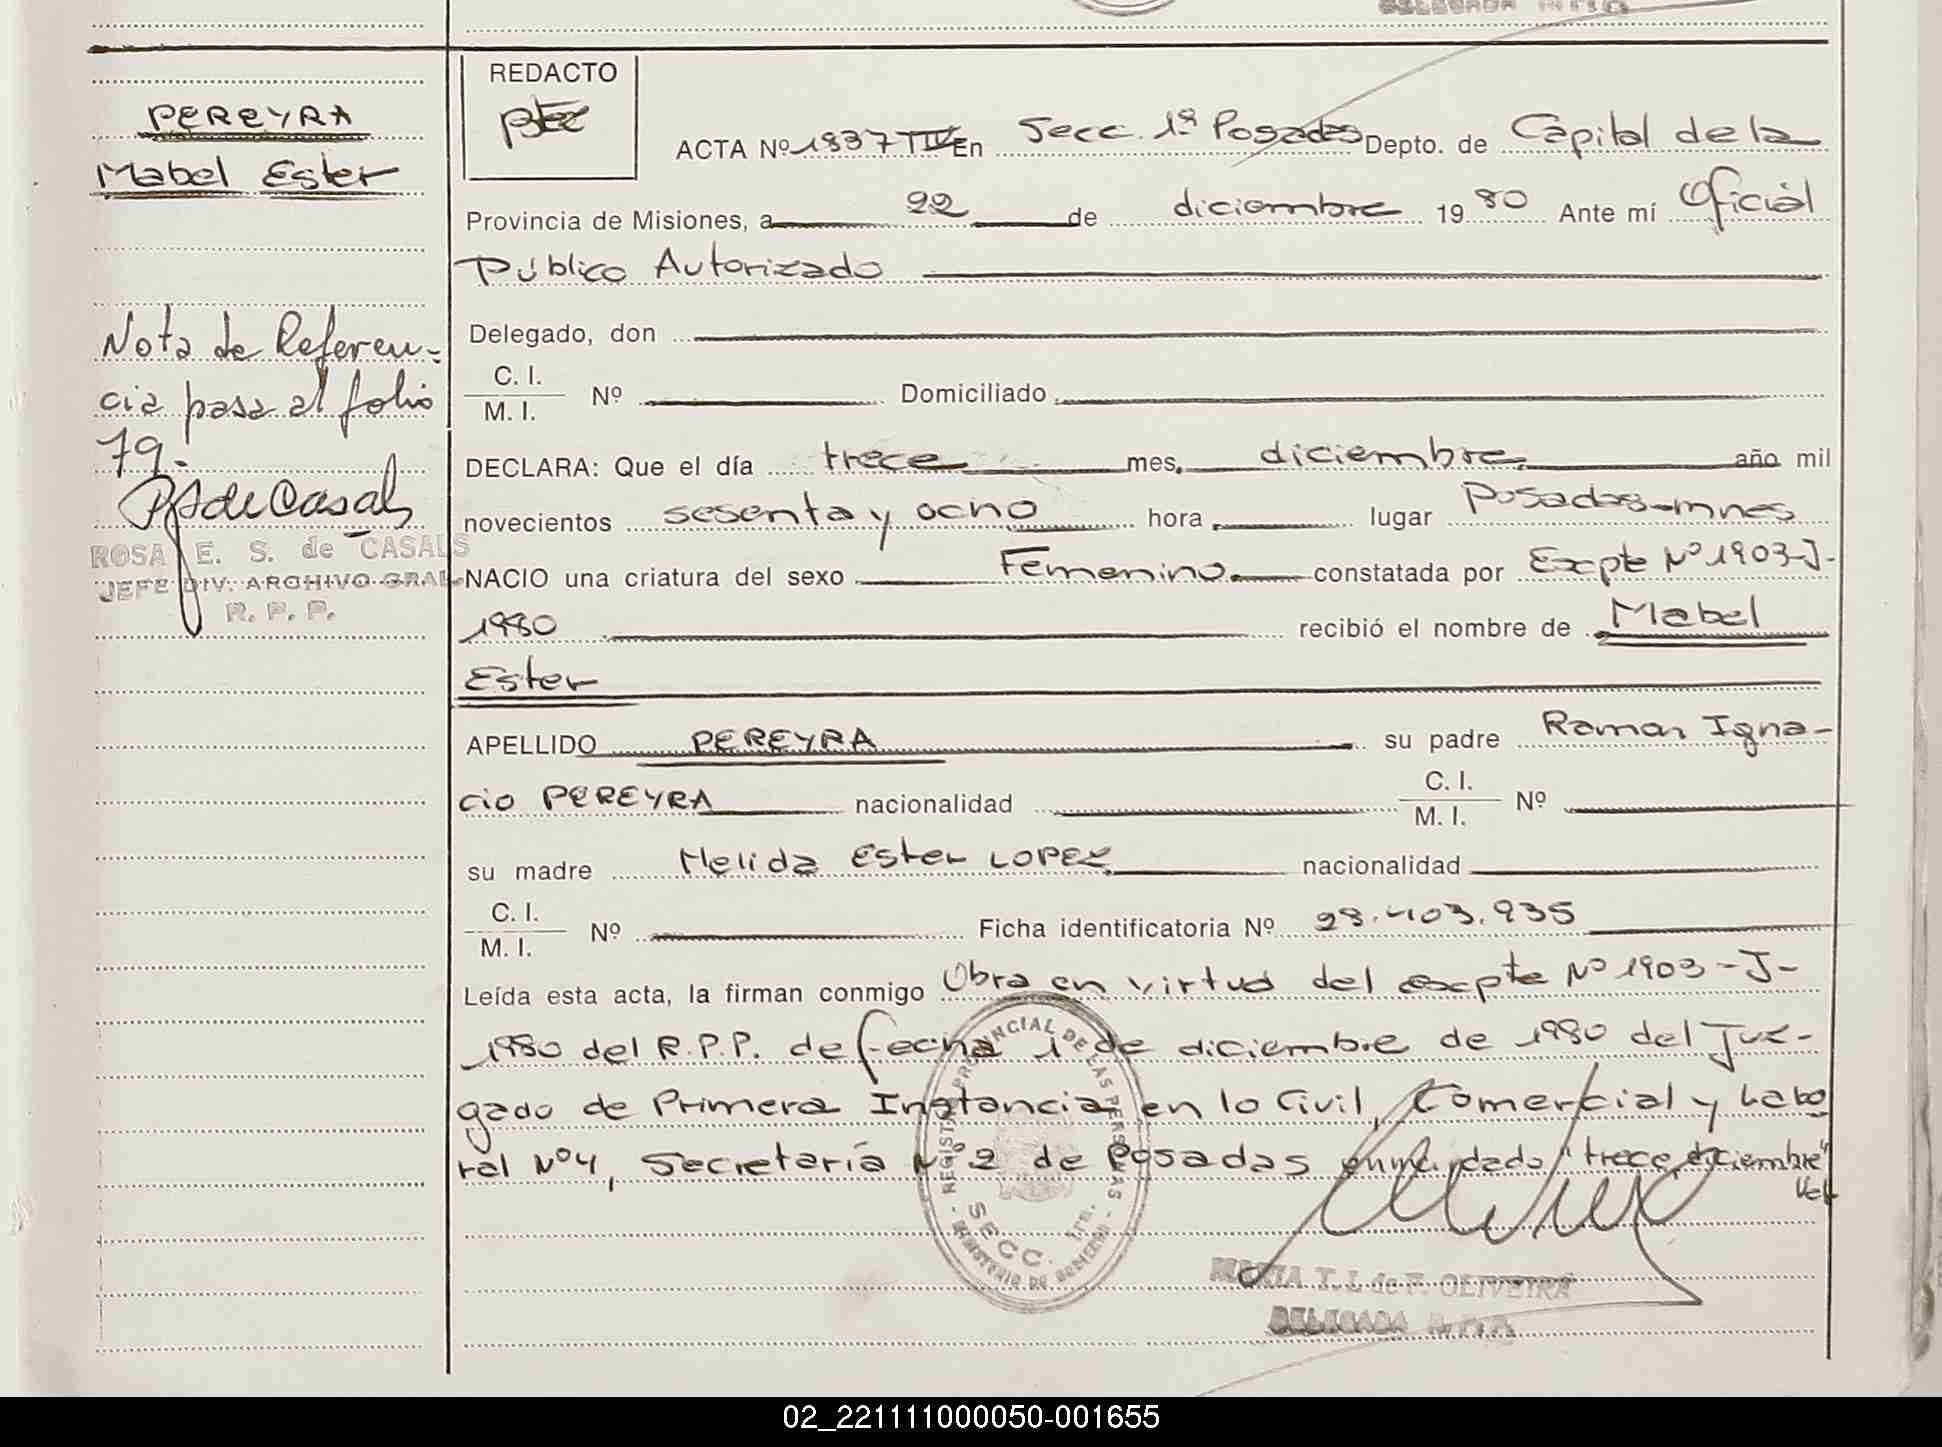 PEREYRA
Mabel Ester
Nota de Referen-
cia pasa al folio
79.
ROSA E. S. de CASALS
JEFE DIV. ARCHIVO GRAL
R. P. P.
REDACTO
ACTA Nº 1837 TIV En Secc. 1ª Posadas Depto. de Capital de la
Provincia de Misiones, a 22 de diciembre 1980 Ante mí Oficial
Público Autorizado
Delegado, don
C. I.
M. I. Nº Domiciliado
DECLARA: Que el día trece mes, diciembre año mil
novecientos sesenta y ocho hora lugar Posadas-mnes
NACIO una criatura del sexo Femenino constatada por Expte Nº 1903-J-
1980 recibió el nombre de Mabel
Ester
APELLIDO PEREYRA su padre Ramon Igna-
cio PEREYRA nacionalidad C. I.
M. I. Nº
su madre Nelida Ester LOPEZ nacionalidad
C. I.
M. I. Nº Ficha identificatoria Nº 28.403.935
Leída esta acta, la firman conmigo Obra en virtud del expte Nº 1903-J-
1980 del R.P.P. de fecha 1 de diciembre de 1980 del Juz-
gado de Primera Instancia en lo Civil, Comercial y Labo
ral Nº 4, Secretaría Nº 2 de Posadas enmendado "trece, diciembre"
Vale
REGISTRO PROVINCIAL DE LAS PERSONAS
SECC. 1ra.
MINISTERIO DE GOBIERNO
MARIA T. L. de F. OLIVEIRA
DELEGADA R.P.P.
02_221111000050-001655